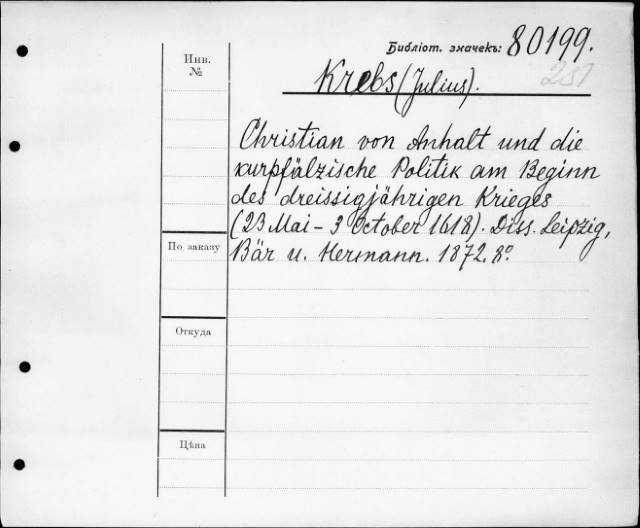 Библіот. значекъ: 80199.
Инв.
№
Krebs (Julius).
Christian von Anhalt und die
kurpfälzische Politik am Beginn
des dreissigjährigen Krieges
(23 Mai - 3 October 1618). Diss. Leipzig,
Bär u. Hermann. 1872. 8º.
По заказу
Откуда
Цѣна